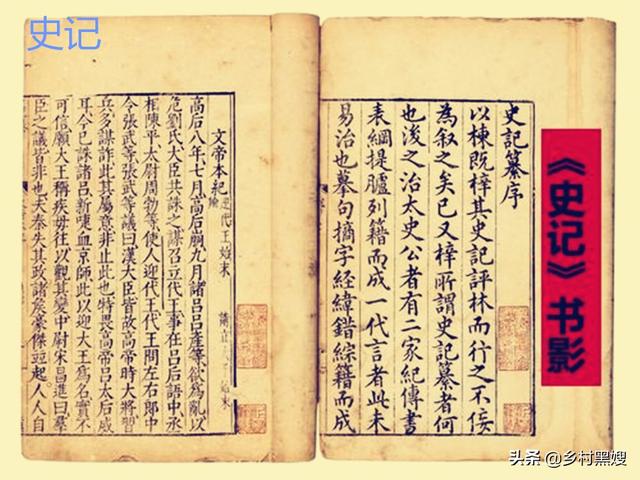 史记
史記纂序
以棟既梓其史記評林而行之不佞
為叙之矣已又梓所謂史記纂者何
也浚之治太史公者有二家紀傳書
表綱提臚列籍而成一代言者此未
易治也摹句摘字經緯錯綜籍而成
文帝本紀
高后八年七月高后崩九月諸呂呂產等欲為亂以
危劉氏大臣共誅之謀召立代王事在呂后語中丞
相陳平太尉周勃等使人迎代王代王問左右郎中
令張武等張武等議曰漢大臣皆故高帝時大將習
兵多謀詐此其屬意非止此也特畏高帝呂太后威
耳今已誅諸呂新喋血京師此以迎大王為名實不
可信願大王稱疾毋往以觀其變中尉宋昌進曰羣
臣之議皆非也夫秦失其政諸矦豪傑竝起人人自
《史记》书影
头条 @乡村黑嫂